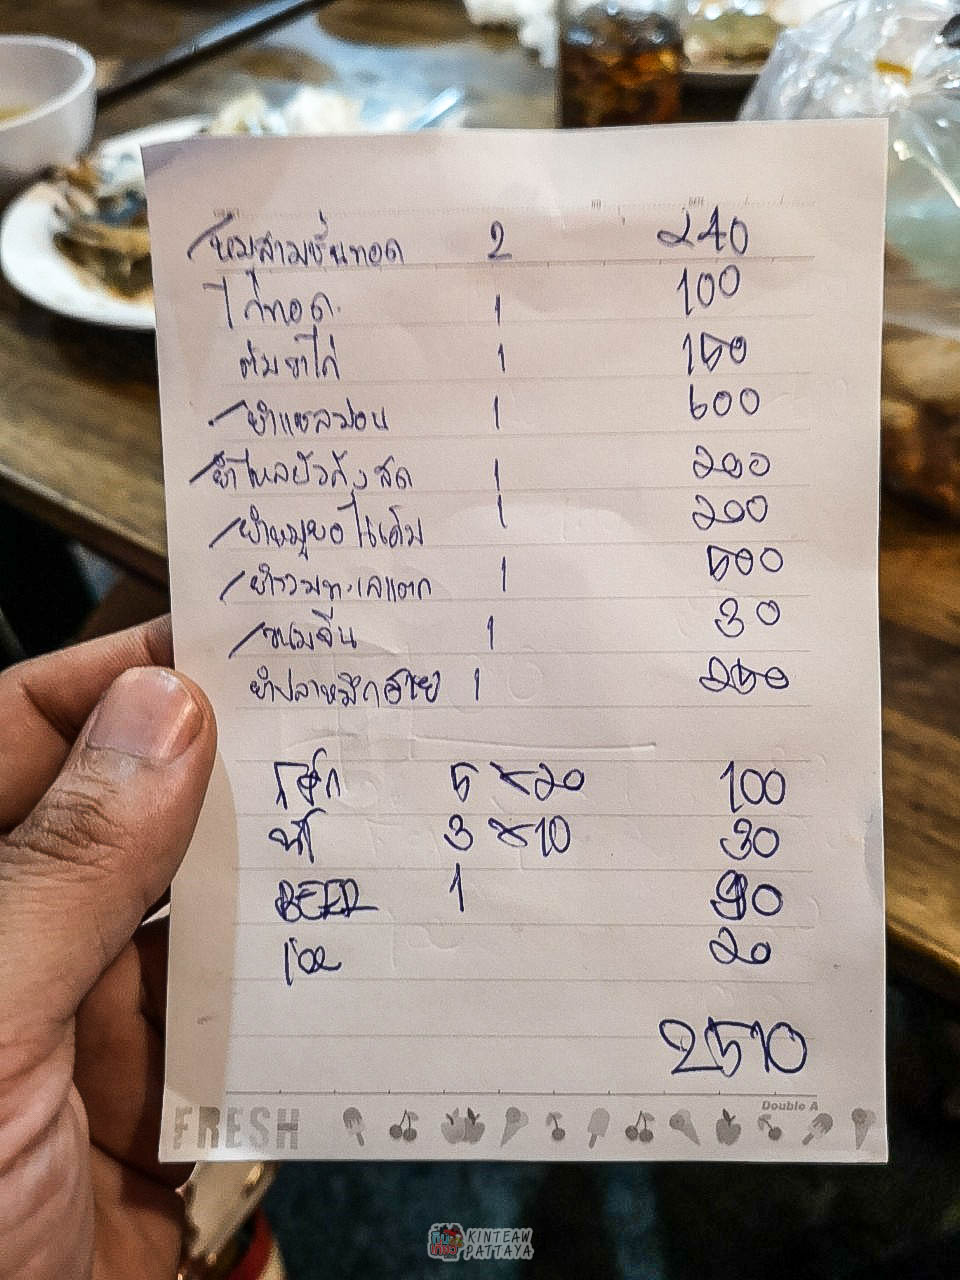 หมูสามชั้นทอด 2 240
ไก่ทอด 1 100
ต้มขาไก่ 1 150
ยำแซลมอน 1 600
ยำไหลบัวกุ้งสด 1 200
ยำหมูยอไข่เค็ม 1 200
ยำรวมทะเลแตก 1 500
ขนมจีน 1 30
ยำปลาหมึกสาย 1 250
โค้ก 5 x20 100
น้ำ 3 x10 30
BEER 1 90
Ice 20
2510
Double A
FRESH
KINTEAW
PATTAYA